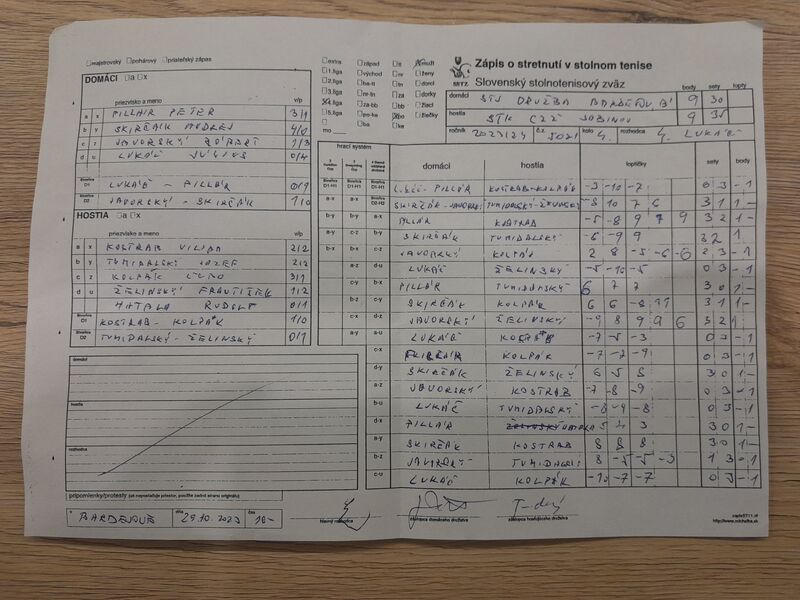 majstrovský pohárový priateľský zápas
DOMÁCI a x
priezvisko a meno v/p
a x PILLÁR PETER 3/1
b y SKIRČÁK ANDREJ 4/0
c z JAVORSKÝ RÓBERT 1/3
d u LUKÁČ JÚLIUS 0/4
D1 LUKÁČ - PILLÁR 0/1
D2 JAVORSKÝ - SKIRČÁK 1/0
HOSTIA a x
priezvisko a meno v/p
a x KOSTRAB VILIAM 2/2
b y TUMIDALSKÝ JOZEF 2/2
c z KOLPÁK 3/1
d u ŽELINSKÝ FRANTIŠEK 1/2
HATALA RUDOLF 0/1
D1 KOSTRAB - KOLPÁK 1/0
D2 TUMIDALSKÝ - ŽELINSKÝ 0/1
domáci
hostia
rozhodca
pripomienky/protesty
BARDEJOV dňa 29.10.2023 čas
hlavný rozhodca
zástupca domáceho družstva
zástupca hosťujúceho družstva
extra
1.liga
2.liga
3.liga
4.liga
5.liga
mo
západ
východ
ba-tt
nr-tn
za-bb
po-ke
ba
tt
nr
tn
za
bb
po
ke
muži
ženy
dorci
dorky
žiaci
žiačky
SSTZ
Zápis o stretnutí v stolnom tenise
Slovenský stolnotenisový zväz
body sety lopty
domáci STJ DRUŽBA BARDEJOV 'B' 9 30
hostia STK CZŽ SABINOV 9 35
ročník 2023/24 č.z. 5021 kolo 4. rozhodca LUKÁČ
hrací systém
domáci hostia loptičky sety body
LUKÁČ - PILLÁR KOSTRAB-KOLPÁK -3 -10 -7 0 3 - 1
SKIRČÁK - JAVORSKÝ TUMIDALSKÝ-ŽELINSKÝ -8 10 7 6 3 1 1 -
PILLÁR KOSTRAB -5 -8 9 7 9 3 2 1 -
SKIRČÁK TUMIDALSKÝ
JAVORSKÝ KOLPÁK 2 8 -5 -6 -6 2 3 - 1
LUKÁČ ŽELINSKÝ -5 -10 -5 0 3 - 1
PILLÁR TUMIDALSKÝ 6 7 7 3 0 1 -
SKIRČÁK KOLPÁK 6 6 -8 11 3 1 1 -
JAVORSKÝ ŽELINSKÝ -9 8 9 9 6 3 2 1
LUKÁČ KOSTRAB -7 -5 -3 0 3 - 1
PILLÁR KOLPÁK -7 -7 -9 0 3 - 1
SKIRČÁK ŽELINSKÝ 6 5 8 3 0 1 -
JAVORSKÝ KOSTRAB -7 -8 -9 0 3 - 1
LUKÁČ TUMIDALSKÝ -8 -9 -8 0 3 - 1
PILLÁR HATALA 3 0 1 -
SKIRČÁK KOSTRAB 8 8 8 3 0 1 -
JAVORSKÝ TUMIDALSKÝ 8 -5 -5 -3 1 3 - 1
LUKÁČ KOLPÁK -10 -7 -7 0 3 - 1